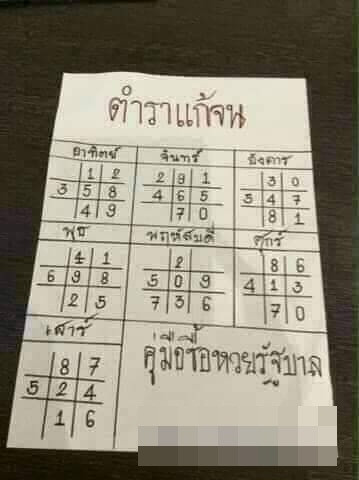 ตำราแก้จน
อาทิตย์ จันทร์ อังคาร
1 2 2 9 1 3 0
3 5 8 4 6 5 5 4 7
4 9 7 0 8 1
พุธ พฤหัสบดี ศุกร์
4 1 2 8 6
6 9 8 5 0 9 4 1 3
2 5 7 3 6 7 0
เสาร์
8 7
5 2 4
1 6
คู่มือซื้อหวยรัฐบาล